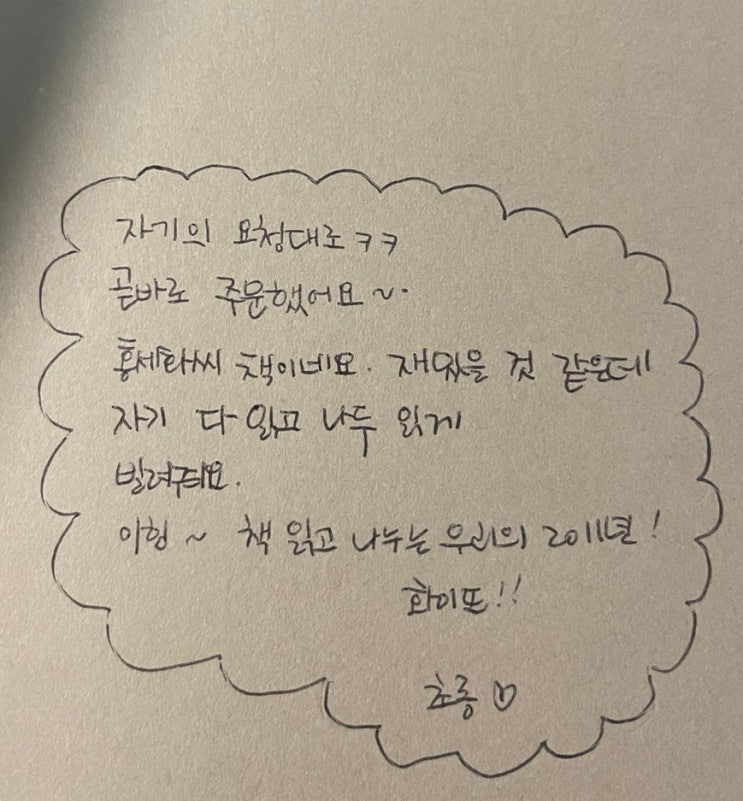 자기의 요청대로 ㅋㅋ
곧바로 주문했어요~.
홍세화씨 책이네요. 재밌을 것 같은데
자기 다 읽고 나두 읽게
빌려줘요.
이힝 ~ 책 읽고 나누는 우리의 2011년!
화이또!!
초롱 ♡